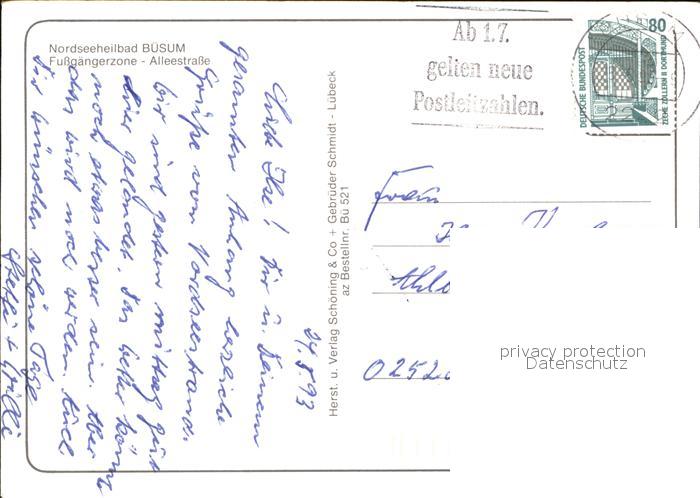 Nordseeheilbad BÜSUM
Fußgängerzone - Alleestraße
24.5.93
Liebe Ilse! Dir u. Deinem
gesamten Anhang herzliche
Grüße vom Nordseestrand.
Wir sind gestern mittag gut
hier gelandet. Das Wetter könnte
noch etwas besser sein. Aber
das wird noch werden. Euch
Wir wünschen schöne Tage
Herst. u. Verlag Schöning & Co + Gebrüder Schmidt - Lübeck
az Bestellnr. Bü 521
Ab 1.7.
gelten neue
Postleitzahlen.
80
DEUTSCHE BUNDESPOST
ZECHE ZOLLERN II DORTMUND
Frau
privacy protection
Datenschutz